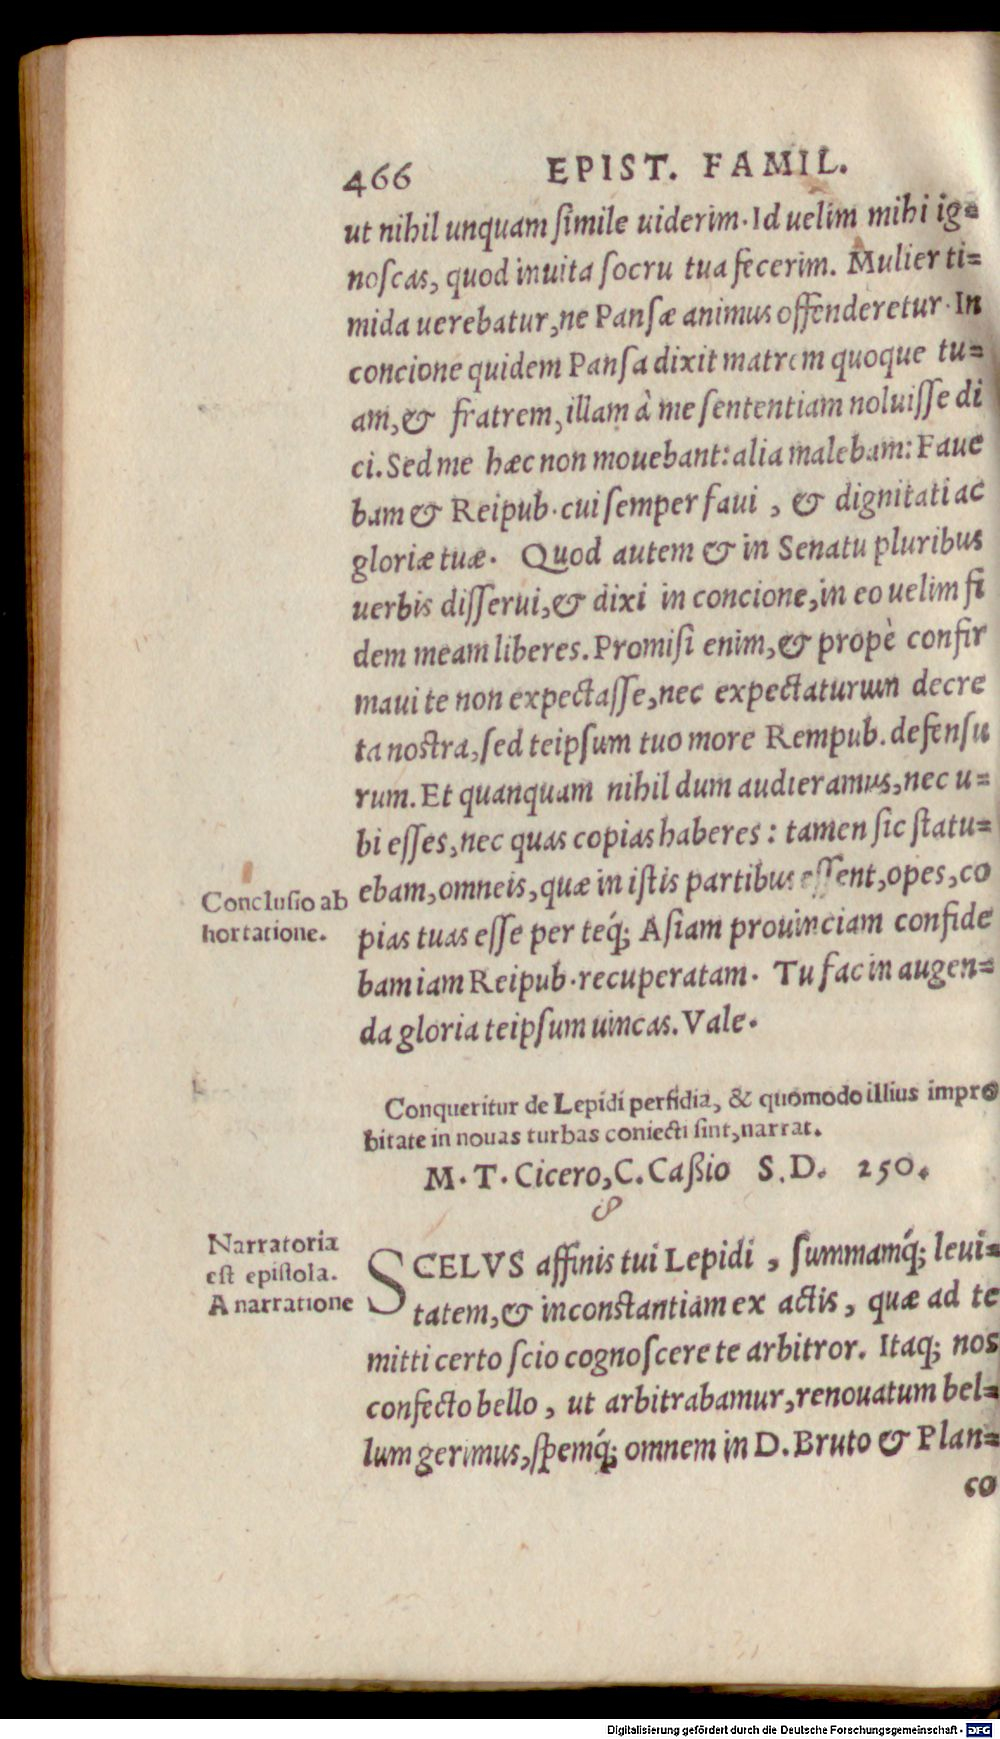 466 EPIST. FAMIL.
ut nihil unquam ſimile uiderim. Id uelim mihi ig=
noſcas, quod inuita ſocru tua fecerim. Mulier ti=
mida uerebatur, ne Panſæ animus offenderetur. In
concione quidem Panſa dixit matrem quoque tu=
am, & fratrem, illam à me ſententiam noluiſſe di
ci. Sed me hæc non mouebant: alia malebam: Faue
bam & Reipub. cui ſemper faui, & dignitati ac
gloriæ tuæ. Quod autem & in Senatu pluribus
uerbis diſſerui, & dixi in concione, in eo uelim fi
dem meam liberes. Promiſi enim, & propè confir
maui te non expectaſſe, nec expectaturum decre
ta noſtra, ſed teipſum tuo more Rempub. defenſu
rum. Et quanquam nihil dum audieramus, nec u=
bi eſſes, nec quas copias haberes: tamen ſic ſtatu=
Concluſio ab
hortatione.
ebam, omneis, quæ in iſtis partibus eſſent, opes, co
pias tuas eſſe per teq́; Aſiam prouinciam confide
bam iam Reipub. recuperatam. Tu fac in augen=
da gloria teipſum uincas. Vale.
Conqueritur de Lepidi perfidia, & quomodo illius impro
bitate in nouas turbas coniecti ſint, narrat.
M. T. Cicero, C. Caßio S. D. 250.
Narratoria
eſt epiſtola.
A narratione
SCELVS affinis tui Lepidi, ſummamq́; leui=
tatem, & inconſtantiam ex actis, quæ ad te
mitti certo ſcio cognoſcere te arbitror. Itaq; nos
confecto bello, ut arbitrabamur, renouatum bel=
lum gerimus, ſpemq́; omnem in D. Bruto & Plan=
co
Digitalisierung gefördert durch die Deutsche Forschungsgemeinschaft · DFG